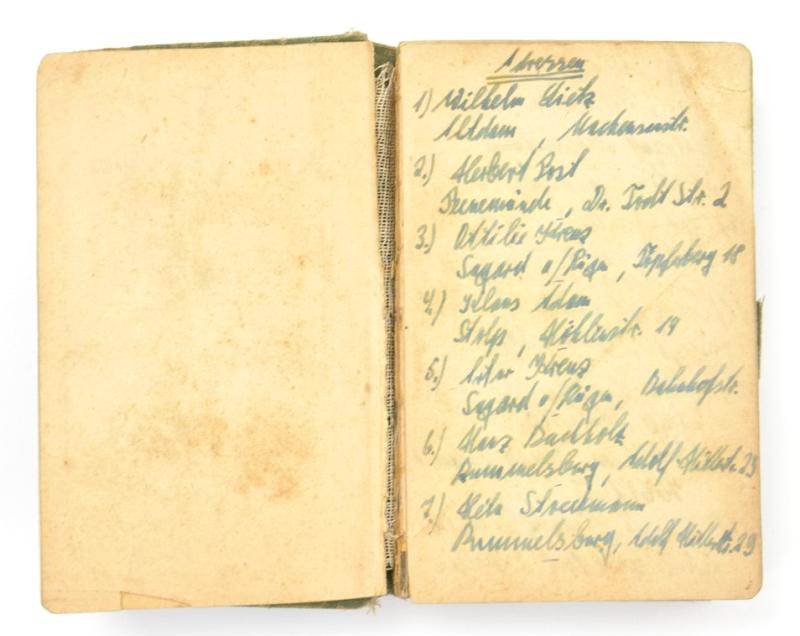 Adressen
1) Wilhelm Dietz
Altdam, Mackensenstr.
2.) Herbert Post
Peenemünde, Dr. Todt Str. 2
3.) Ottilie Krenz
Sagard a/Rügen, Töpferberg 18
4.) Klaus Adam
Stolp, Mühlenstr. 14
5.) Krenz
Sagard a/Rügen, Bahnhofstr.
6.) Buchholz
Rummelsberg, Adolf 29
7.) Stresemann
Rummelsberg, Adolf 29